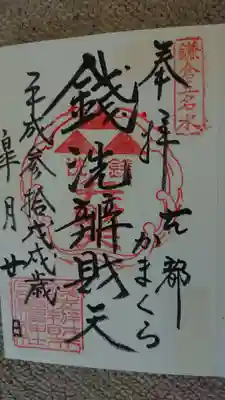 鎌倉五名水
奉拝
古都
かまくら
錢洗辨財天
平成参拾戊戌歳
皐月廿日